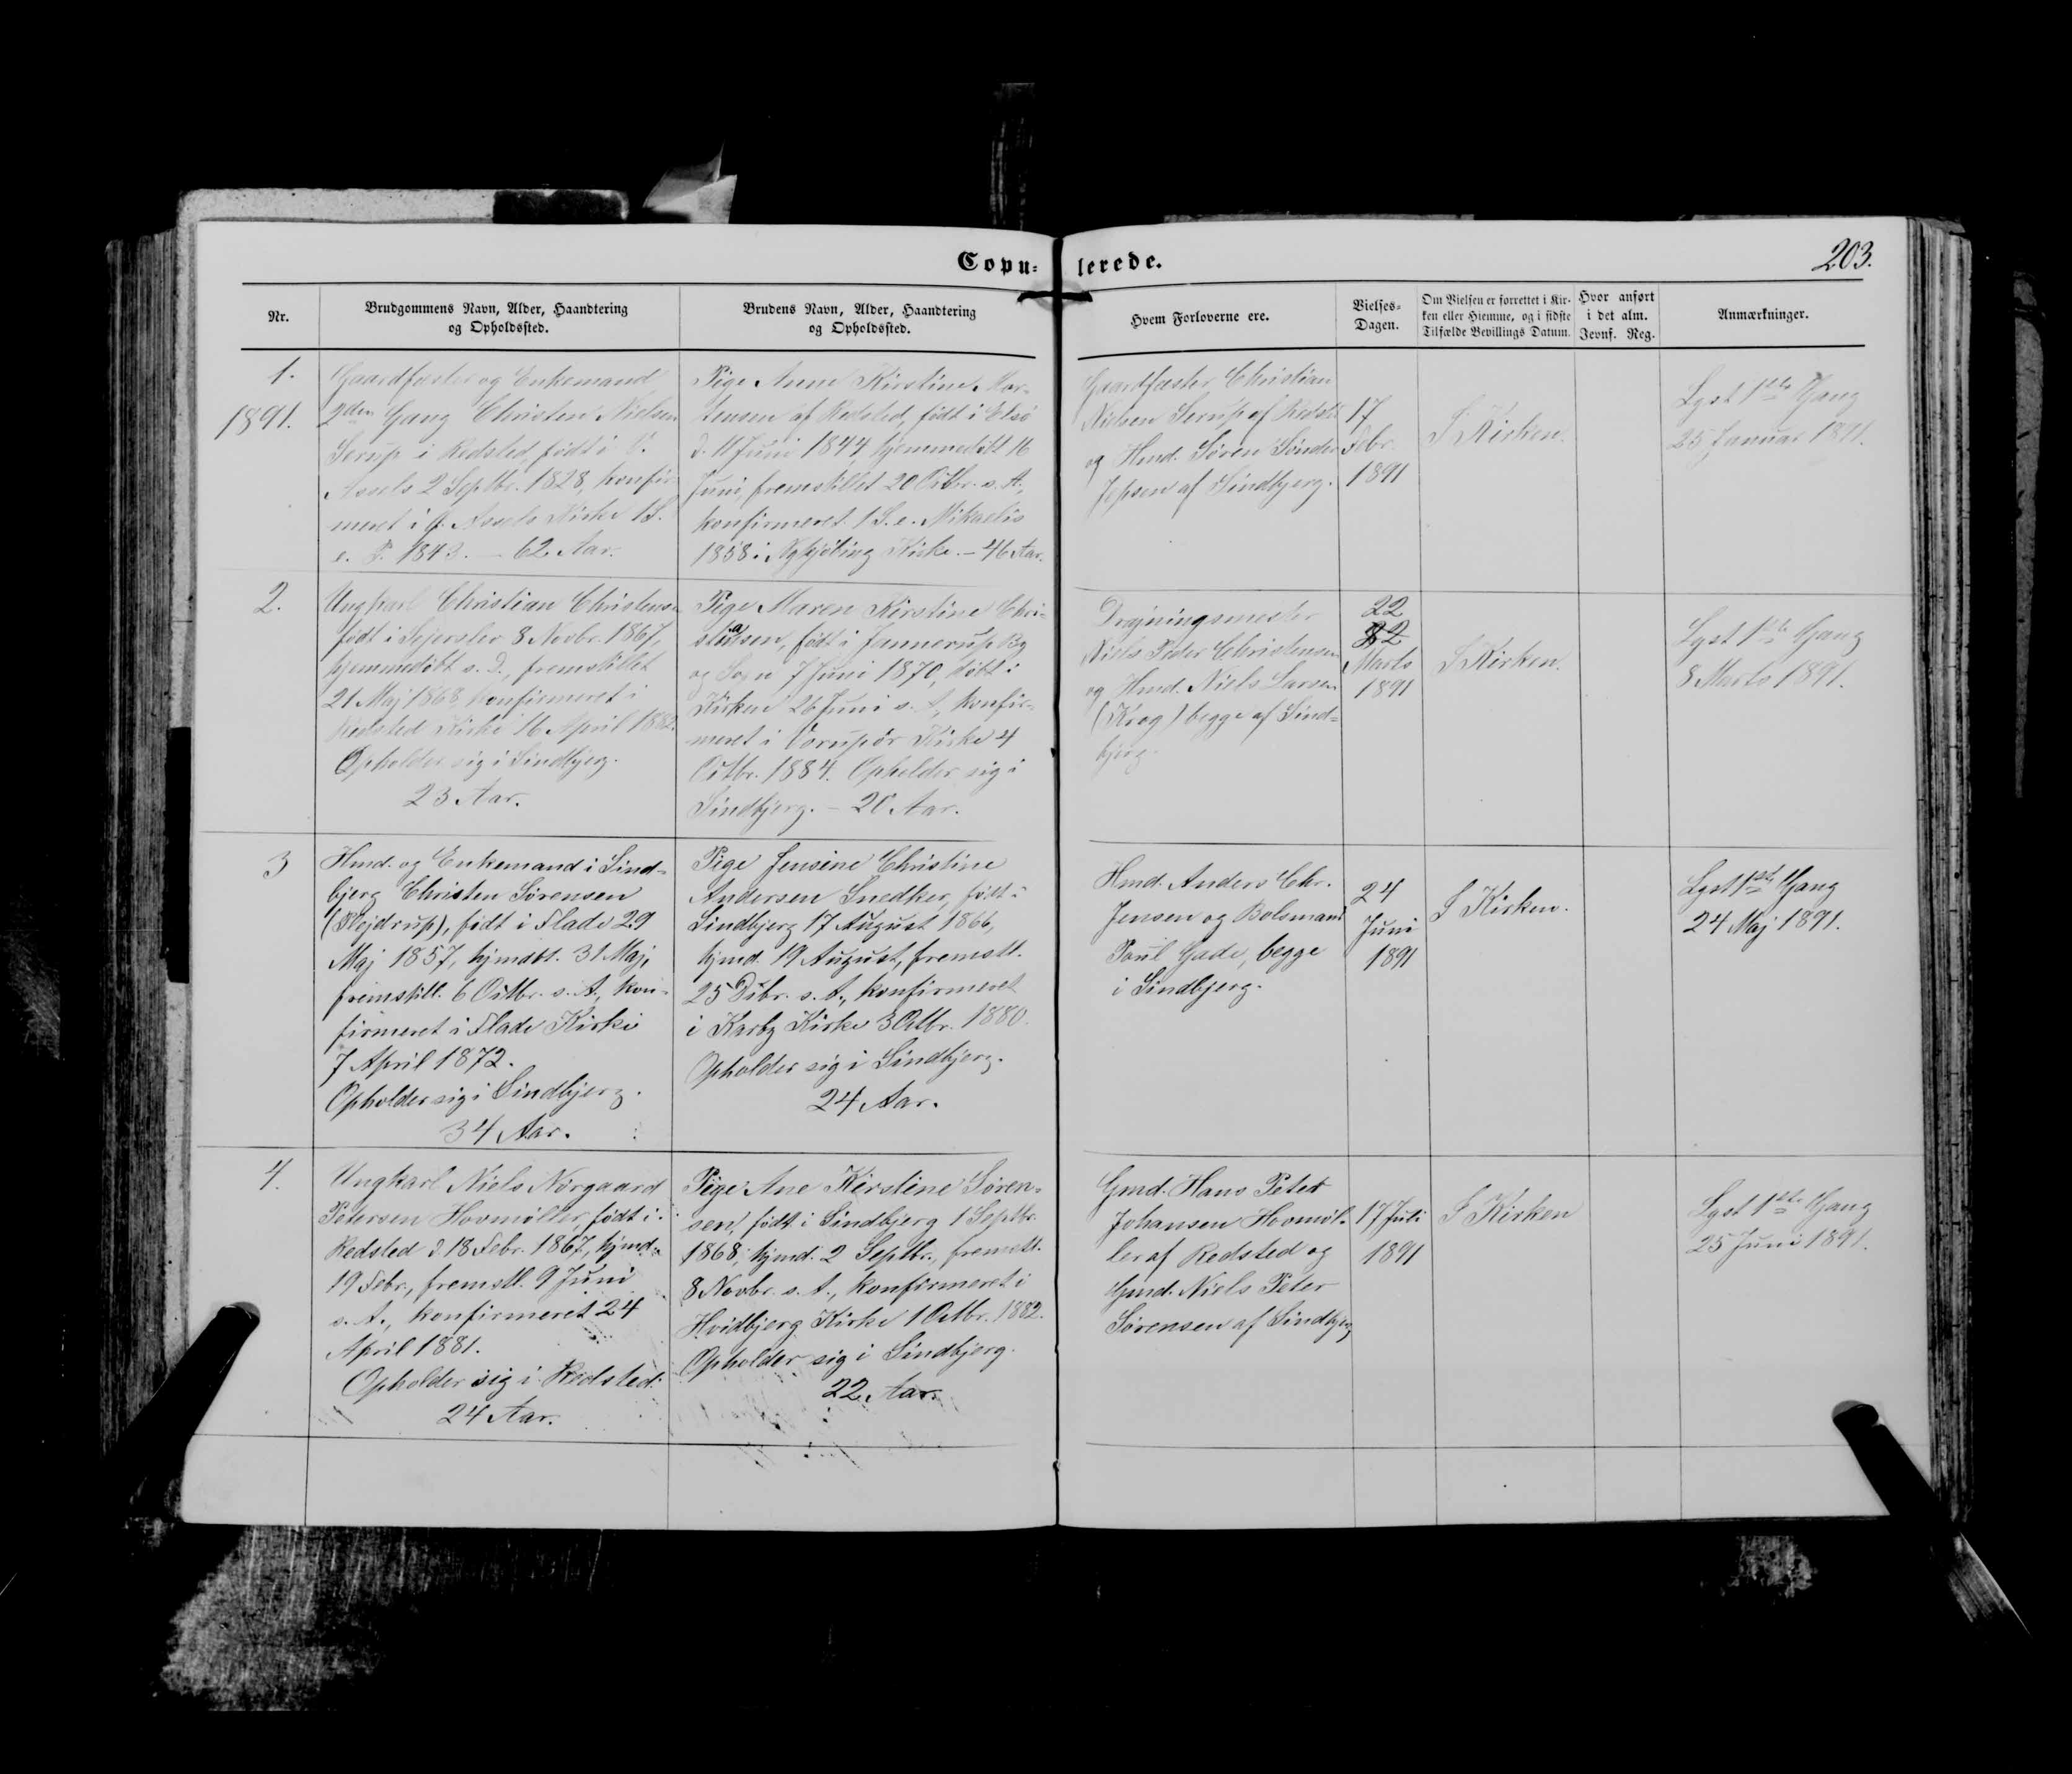 Copulerede.
203.
Nr.
Brudgommens Navn, Alder, Haandtering
og Opholdssted.
Brudens Navn, Alder, Haandtering
og Opholdssted.
Hvem Forloverne ere.
Vielses-
Dagen.
Om Vielsen er forrettet i Kir-
ken eller Hjemme, og i sidste
Tilfælde Bevillings Datum.
Hvor anført
i det alm.
Jevnf. Reg.
Anmærkninger.
1.
1891.
Gaardfæster og Enkemand
2den Gang Christen Nielsen
Serup i Redsted, født i
Assels 2 Septbr. 1828, konfir-
meret i Assels Kirke 1 S.
e. P. 1843. — 62 Aar.
Pige Anne Kirstine Mor-
tensen af Redsted, født i Elsø
d. 11 Juni 1844, hjemmedøbt 16
Juni, fremstillet 20 Octbr. s. A.,
konfirmeret 1 S. e. Mikaelis
1858 i Nykjøbing Kirke. — 46 Aar.
Gaardfæster Christian
Nielsen Serup af Redsted
og Hmd. Søren Sønder
Jepsen af Sindbjerg.
17
Febr.
1891
I Kirken.
Lyst 1ste Gang
25 Januar 1891.
2.
Ungkarl Christian Christensen
født i Sejerslev 8 Novbr. 1867,
hjemmedøbt s. D., fremstillet
21 Maj 1868, konfirmeret i
Redsted Kirke 16 April 1882.
Opholder sig i Sindbjerg.
23 Aar.
Pige Maren Kirstine Chri-
stiansen, født i Jannerup By
og Sogn 7 Juni 1870, døbt i
Kirken 26 Juni s. A., konfir-
meret i Vorupør Kirke 4
Octbr. 1884. Opholder sig i
Sindbjerg. — 20 Aar.
Drajningsmester
Niels Peder Christensen
og Hmd. Niels Larsen
(Krog) begge af Sind-
bjerg.
22
Marts
1891
I Kirken.
Lyst 1ste Gang
8 Marts 1891.
3
Hmd. og Enkemand i Sind-
bjerg Christen Sørensen
(Plejdrup), født i Flade 29
Maj 1857, hjmdbt. 31 Maj,
fremstill. 6 Octbr. s. A., kon-
firmeret i Flade Kirke
7 April 1872.
Opholder sig i Sindbjerg.
34 Aar.
Pige Jensine Christine
Andersen Snedker, født i
Sindbjerg 17 August 1866,
hjmd. 19 August, fremstl.
25 Dcbr. s. A., konfirmeret
i Karby Kirke 3 Octbr. 1880.
Opholder sig i Sindbjerg.
24 Aar.
Hmd. Anders Chr.
Jensen og Bolsmand
Poul Gade, begge
i Sindbjerg.
24
Juni
1891
I Kirken.
Lyst 1ste Gang
24 Maj 1891.
4.
Ungkarl Niels Nørgaard
Petersen Hovmøller, født i
Redsted d. 18 Febr. 1867, hjmd.
19 Febr., fremstl. 9 Juni
s. A., konfirmeret 24
April 1881.
Opholder sig i Redsted.
24 Aar.
Pige Ane Kirstine Søren-
sen, født i Sindbjerg 1 Septbr.
1868, hjmd. 2 Septbr., fremstl.
8 Novbr. s. A., konfirmeret i
Hvidbjerg Kirke 1 Octbr. 1882.
Opholder sig i Sindbjerg.
22 Aar.
Gmd. Hans Peter
Johansen Hovmøl-
ler af Redsted og
Gmd. Niels Peter
Sørensen af Sindbjerg
17 Juli
1891
I Kirken
Lyst 1ste Gang
25 Juni 1891.